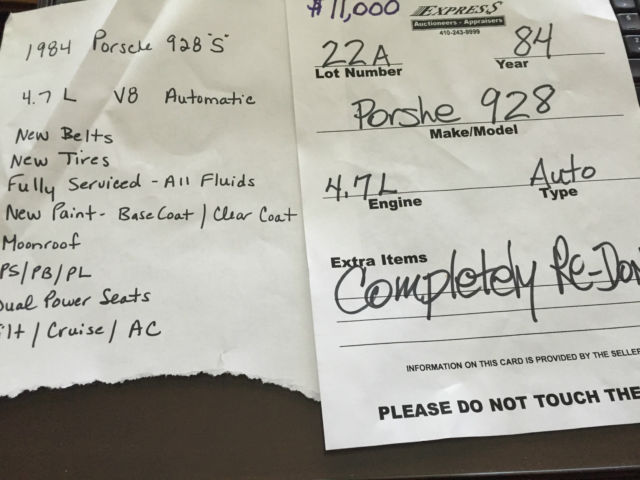 1984 Porsche 928 "S"
4.7 L V8 Automatic
New Belts
New Tires
Fully Serviced - All Fluids
New Paint - Base Coat / Clear Coat
Moonroof
PS/PB/PL
Dual Power Seats
ilt / Cruise / AC
$11,000
EXPRESS
Auctioneers - Appraisers
410-243-9999
22A 84
Lot Number Year
Porshe 928
Make/Model
4.7L Auto
Engine Type
Extra Items
Completely Re-Don
INFORMATION ON THIS CARD IS PROVIDED BY THE SELLER
PLEASE DO NOT TOUCH THE